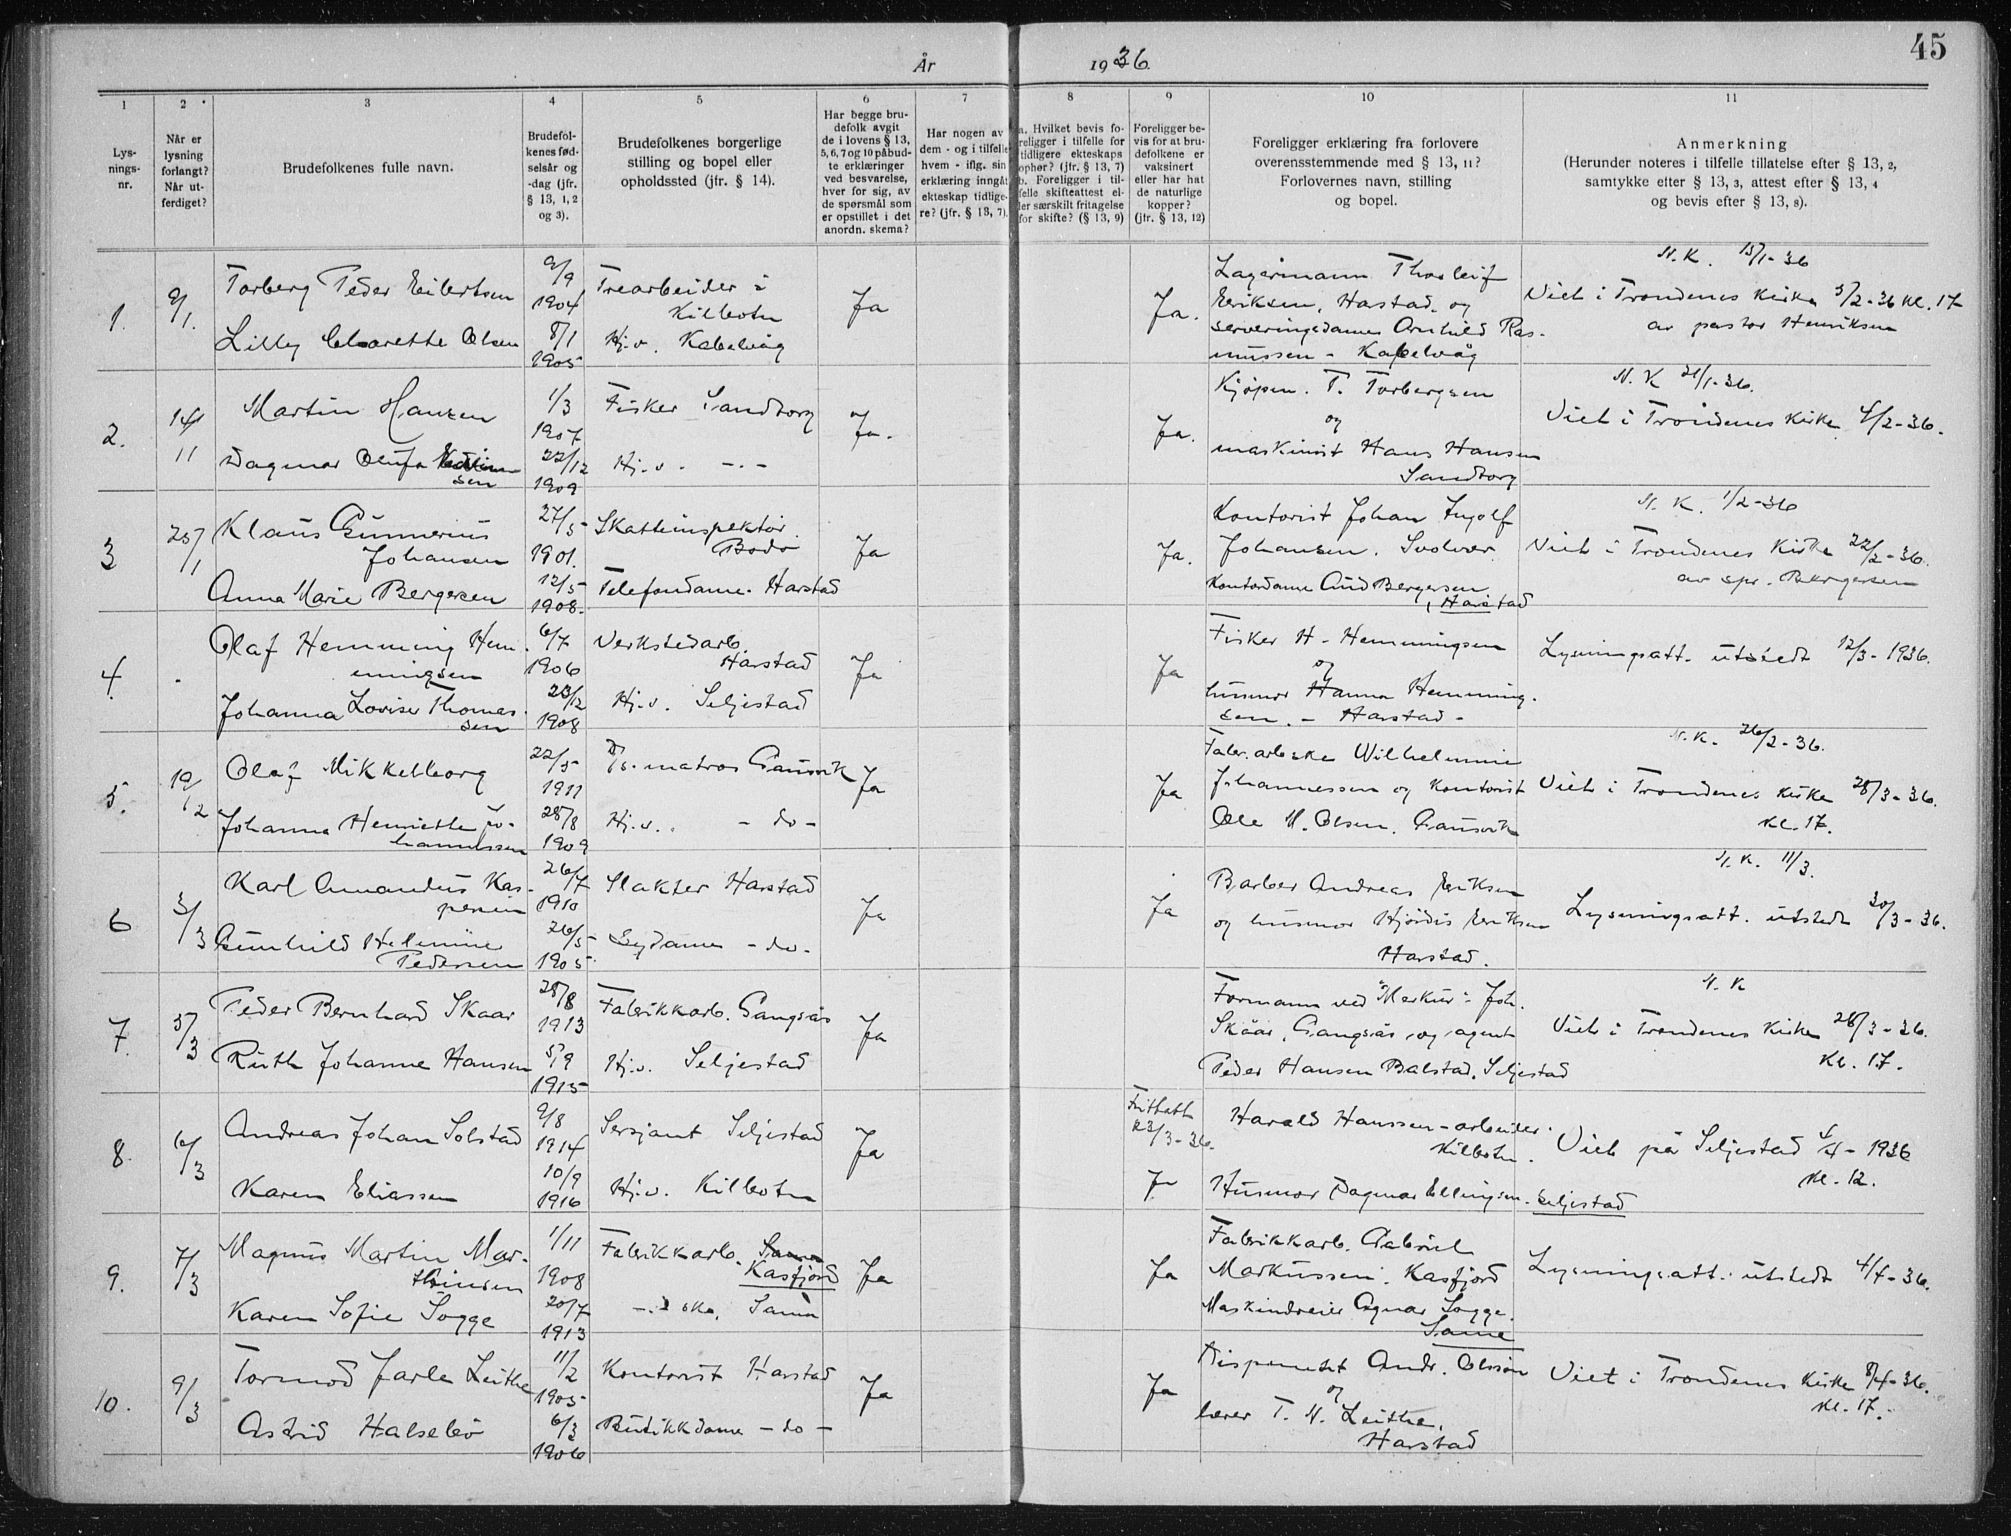 45
År 1936.
1
2
3
4
5
6
7
8
9
10
11
Lys-
nings-
nr.
Når er
lysning
forlangt?
Når ut-
ferdiget?
Brudefolkenes fulle navn.
Brudefol-
kenes fød-
selsår og
-dag (jfr.
§ 13, 1, 2
og 3).
Brudefolkenes borgerlige
stilling og bopel eller
opholdssted (jfr. § 14).
Har begge bru-
defolk avgit
de i lovens § 13,
5, 6, 7 og 10 påbud-
te erklæringer
ved besvarelse,
hver for sig, av
de spørsmål som
er opstillet i det
anordn. skema?
Har nogen av
dem - og i tilfelle
hvem - iflg. sin
erklæring inngåt
ekteskap tidlige-
re? (jfr. § 13, 7).
a. Hvilket bevis fo-
religger i tilfelle for
tidligere ekteskaps
ophør? (jfr. § 13, 7)
b. Foreligger i til-
felle skifteattest el-
ler særskilt fritagelse
for skifte? (§ 13, 9)
Foreligger be-
vis for at bru-
defolkene er
vaksinert
eller har hat
de naturlige
kopper?
(jfr. § 13, 12)
Foreligger erklæring fra forlovere
overensstemmende med § 13, 11?
Forlovernes navn, stilling
og bopel.
Anmerkning
(Herunder noteres i tilfelle tillatelse efter § 13, 2,
samtykke efter § 13, 3, attest efter § 13, 4
og bevis efter § 13, 8).
1.
9/1.
Torberg Peder Eilertsen
9/9
1904
Trearbeider i
Kilbotn
Lilly Charette Olsen
8/1
1905
Hj.v. Kabelvåg
Ja
Ja.
Lagermann Thorleif
Eriksen, Harstad og
serveringsdame Arnhild Ras-
mussen - Kabelvåg
N.K. 15/1-36
Viet i Trondenes Kirke 5/2-36 kl. 17
av pastor Henriksen
2.
14/
11
Martin Hansen
1/3
1907
Fisker Sandtorg
Dagmar Olufa
sen
22/12
1909
Hj.v. -.-
Ja.
Ja.
Kjøpm. T. Torbergsen
og
maskinist Hans Hansen
Sandtorg
N.K 21/1-36.
Viet i Trondenes Kirke 4/2-36.
3
25/1
Klaus Gunnerius
Johansen
27/5
1901.
Skatteinspektør
Bodø
Anna Marie Bergersen
12/5
1908.
Telefondame. Harstad
Ja
Ja.
Kontorist Johan Ingolf
Johansen. Svolvær
Kontordame Aud Bergersen
, Harstad
N.K. 1/2-36
Viet i Trondenes Kirke 22/2-36.
av spr. Bergersen
4.
Olaf Hemming Hem
mingsen
6/7
1906
Verkstedarb.
Harstad
Johanna Lovise Thomas-
sen
23/12
1908
Hj.v. Seljestad
Ja
Ja
Fisker H- Hemmingsen
og
husmor Hanna Hemming.
sen. - Harstad -
Lysningsatt. utstedt 12/3-1936.
5.
19/12
Olaf Mikkelborg
22/5
1911
matros Gausvik
Johanna Henriette Jo-
hannessen
28/8
1909
Hj.v. - do -
Ja
Ja
Fabr.arbeske Wilhelmine
Johannessen og kontorist
Ole M. Olsen. Gausvik
N.K. 26/2-36.
Viet i Trondenes Kirke 28/3-36.
kl. 17.
6
3/3
Karl Amandus Kas-
persen
26/7
1910
Slakter Harstad
Gunhild Helmine
Pedersen
26/5
1905
Sydame - do-
Ja
Ja
Barber Andreas Eriksen
og husmor Hjørdis Eriksen
Harstad.
N.K. 11/3.
Lysningsatt. utstedt 30/3-36.
7.
5/3
Peder Bernhard Skaar
28/8
1913
Fabrikkarb. Gangsås
Ruth Johanne Hansen
5/9
1915
Hj.v. Seljestad
Ja
Formann ved "Merkur" Joh.
Skaar, Gangsås, og agent
Peder Hansen Balstad. Seljestad
N.K
Viet i Trondenes Kirke 28/3-36.
Kl. 17.
8.
6/3
Andreas Johan Solstad
9/8
1914
Sersjant Seljestad
Karen Eliassen
10/9
1916
Hj.v. Kilbotn
Ja
23/3-36.
Ja
Harald Hanssen - arbeider.
Kilbotn.
Husmor Dagmar Ellingsen. Seljestad
Viet på Seljestad 4/4-1936
kl. 12.
9.
7/3
Magnus Martin Mar-
thinsen
1/11
1908
Fabrikkarb.
Kasfjord
Karen Sofie Sogge
20/7
1913
Sama
Ja
Ja
Fabrikkarb. Gabriel
Markussen. Kasfjord
Maskindreier Agnar Sogge.
Same
Lysningsatt. utstedt 4/4-36.
10.
9/3
Tormod Jarle Leithe
11/2
1905
Kontorist Harstad
Astrid Halsebø
6/3
1906
Butikkdame - do -
Ja
Ja
Disponent Andr. Olsson
og
lærer T. N. Leithe,
Harstad
Viet i Trondenes Kirke 8/4-36.
kl. 17.